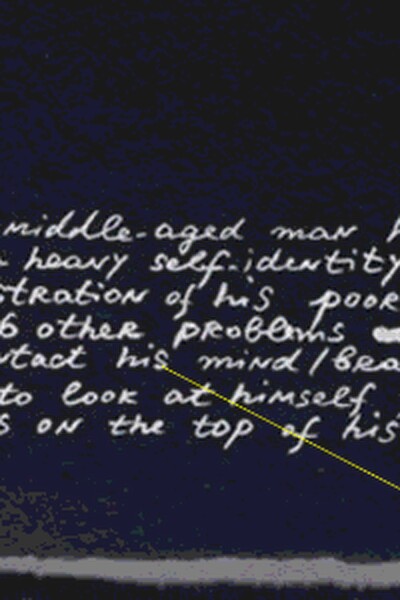 middle-aged man
heavy self-identity
stration of his poor
other problems
ntact his mind/bra
to look at himself
s on the top of his